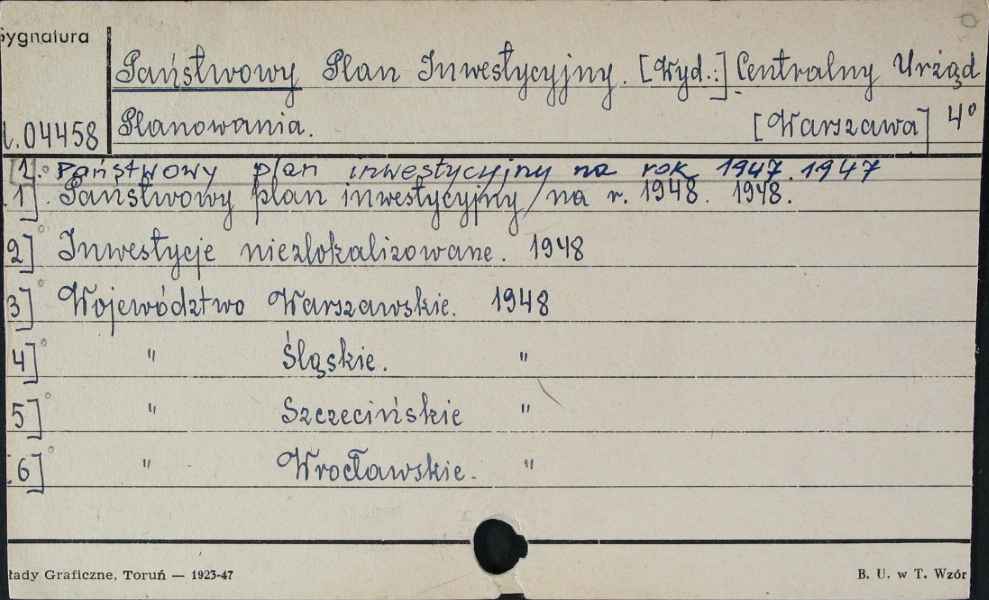 Sygnatura
Państwowy Plan Inwestycyjny. [Wyd.:] Centralny Urząd
.04458 Planowania. [Warszawa] 4°
[1]. Państwowy plan inwestycyjny na rok 1947. 1947
1]. Państwowy plan inwestycyjny na r. 1948. 1948.
2]° Inwestycje niezlokalizowane. 1948
3]° Województwo Warszawskie. 1948
4]° " Śląskie. "
5]° " Szczecińskie "
6]° " Wrocławskie. "
łady Graficzne, Toruń — 1923-47 B. U. w T. Wzór